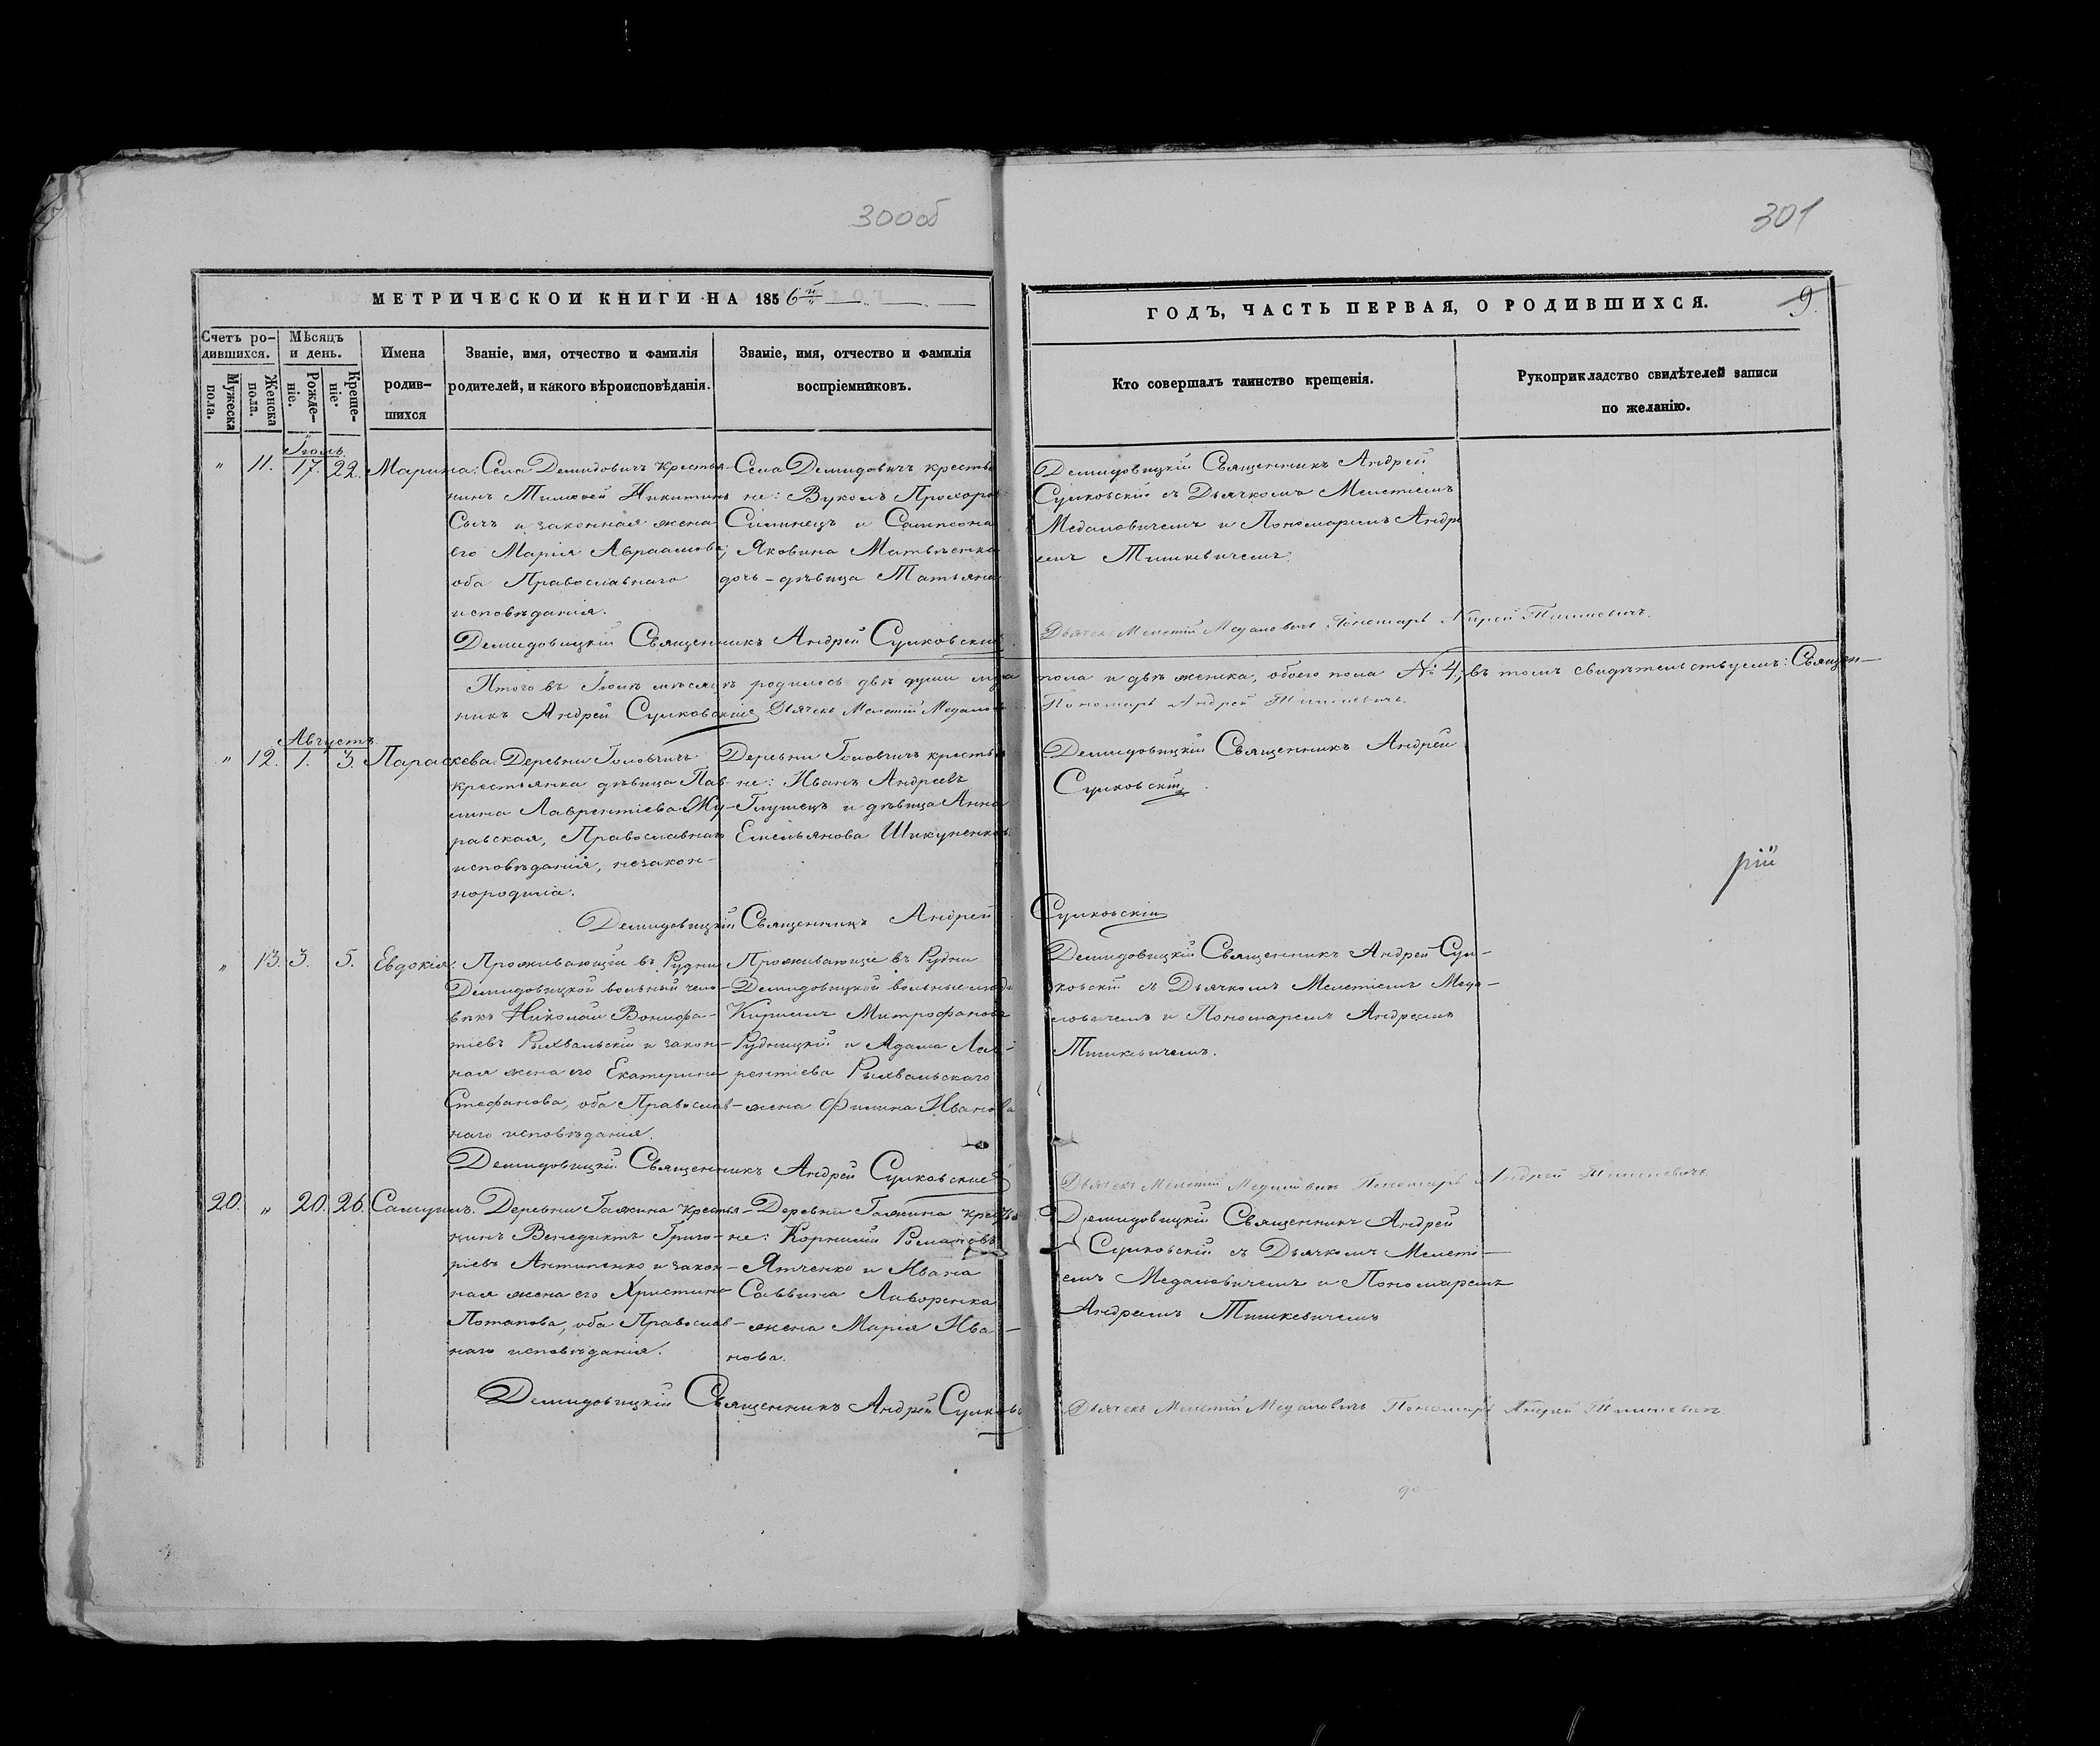 300об
301
МЕТРИЧЕСКОЙ КНИГИ НА 1856й
ГОДЪ, ЧАСТЬ ПЕРВАЯ, О РОДИВШИХСЯ.
9.
Счетъ ро-
дившихся.
Мужеска пола.
Женска пола.
Мѣсяцъ и день.
Рожде-
ніе.
Креще-
ніе.
Имена
родив-
шихся
Званіе, имя, отчество и фамилія
родителей, и какого вѣроисповѣданія.
Званіе, имя, отчество и фамилія
воспріемниковъ.
Кто совершалъ таинство крещенія.
Рукоприкладство свидѣтелей записи
по желанію.
Іюль
" 11. 17. 22. Марина.
Села Демидовичъ крестья-
нинъ Тимофей Никитинъ
Сычъ и законная жена
его Марія Авраамова,
оба Православнаго
исповѣданія.
Села Демидовичъ крестья
не: Вуколъ Прохоровъ
Силинецъ и Сампсона
Яковина Матвѣенка
дочь-дѣвица Татьяна
Демидовицкій Священникъ Андрей
Сулковскій съ Дьячкомъ Мелетіемъ
Медаловичемъ и Пономаремъ Андре
емъ Тишкевичемъ.
Демидовицкій Священникъ Андрей Сулковскій
Дьячекъ Мелетій Медаловичъ Пономарь Андрей Тишкевичъ.
Итого въ Іюлѣ мѣсяцѣ родилось двѣ души муж
пола и двѣ женска, обоего пола № 4; въ томъ свидѣтельствуемъ: Священ-
никъ Андрей Сулковскій Дьячекъ Мелетій Медалов
Пономарь Андрей Тишкевичъ.
Августъ
" 12. 1. 3. Параскева.
Деревни Головчичъ
крестьянка дѣвица Пав-
лина Лаврентіева Жу-
равская, Православнаго
исповѣданія, незакон-
нородила.
Деревни Головчичъ крестья
не: Иванъ Андреевъ
Глушецъ и дѣвица Анна
Емельянова Шикуненкова
Демидовицкій Священникъ Андрей
Сулковскій.
рій
Демидовицкій Священникъ Андрей Сулковскій
" 13. 3. 5. Евдокія.
Проживающій въ Рудни
Демидовицкой вольный чело-
вѣкъ Николай Вонифа-
тіевъ Рыхвальскій и закон-
ная жена его Екатерина
Стефанова, оба Православ-
наго исповѣданія.
Проживающіе въ Рудни
Демидовицкой вольные люди
Кириллъ Митрофановъ
Рудницкій и Адама Лав-
рентіева Рыхвальскаго
жена Филина Иванова
Демидовицкій Священникъ Андрей Сул-
ковскій съ Дьячкомъ Мелетіемъ Меда-
ловичемъ и Пономаремъ Андреемъ
Тишкевичемъ.
Демидовицкій Священникъ Андрей Сулковскій
Дьячекъ Мелетій Медаловичъ Пономарь Андрей Тишкевичъ
20. " 20. 26. Самуилъ.
Деревни Гажина крестья-
нинъ Венедиктъ Григо-
ріевъ Антипенко и закон-
ная жена его Христина
Потапова, оба Православ-
наго исповѣданія.
Деревни Гажина крестья
не: Корнилій Романовъ
Ятченко и Ивана
Саввина Лаворенка
жена Марія Ива-
нова.
Демидовицкій Священникъ Андрей
Сулковскій съ Дьячкомъ Мелеті-
емъ Медаловичемъ и Пономаремъ
Андреемъ Тишкевичемъ
Демидовицкій Священникъ Андрей Сулковс
Дьячекъ Мелетій Медаловичъ Пономарь Андрей Тишкевичъ